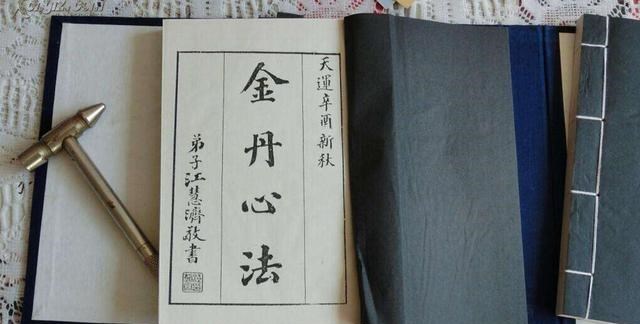 天運辛酉新秋
金丹心法
弟子江慧濟敬書